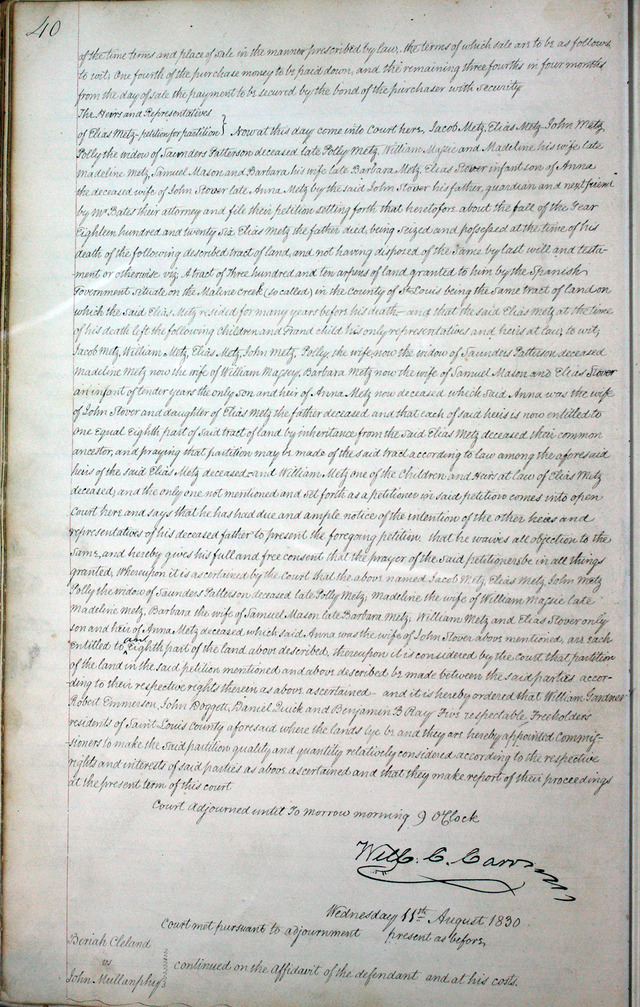 40
of the time terms and place of sale in the manner prescribed by law, the terms of which sale are to be as follows,
to wit, One fourth of the purchase money to be paid down, and the remaining three fourths in four months
from the day of sale the payment to be secured by the bond of the purchaser with security
The Heirs and Representatives
of Elias Metz - petition for partition } Now at this day come into Court here, Jacob Metz, Elias Metz John Metz,
Polly the widow of Saunders Patterson deceased late Polly Metz, William Massie and Madeline his wife late
madeline Metz, Samuel Mason and Barbara his wife late Barbara Metz, Elias Stover infant son of Anna
the deceased wife of John Stover late Anna Metz by the said John Stover his father, guardian and next friend
by Mr Bates their attorney and file their petition setting forth that heretofore about the fall of the Year
Eighteen hundred and twenty Six Elias Metz the father died, being Seized and possessed at the time of his
death of the following described tract of land, and not having disposed of the Same by last will and testa-
ment or otherwise viz: A tract of three hundred and ten arpens of land granted to him by the Spanish
Government Situate on the Maline creek (so called) in the County of St Louis being the Same tract of land on
which the Said Elias Metz resided for many years before his death - and that the said Elias Metz at the time
of his death left the following children and Grand child his only representatives and heirs at law, to wit,
Jacob Metz, William Metz, Elias Metz, John Metz, Polly, the wife now the widow of Saunders Patterson deceased
Madeline Metz now the wife of William Massey, Barbara Metz now the wife of Samuel Mason and Elias Stover
an infant of tender years the only son and heir of Anna Metz now deceased which said Anna was the wife
of John Stover and daughter of Elias Metz the father deceased, and that each of said heirs is now entitled to
one Equal Eighth part of Said tract of land by inheritance from the Said Elias Metz deceased their common
ancestor, and praying that partition may be made of the said tract according to law among the aforesaid
heirs of the said Elias Metz deceased - and William Metz one of the Children and Heirs at Law of Elias Metz
deceased, and the only one not mentioned and set forth as a petitioner in said petition comes into open
Court here and says that he has had due and ample notice of the intention of the other heirs and
representatives of his deceased father to present the foregoing petition that he waives all objection to the
Same, and hereby gives his full and free consent that the prayer of the Said petitioners be in all things
granted, Whereupon it is ascertained by the Court that the above named Jacob Metz, Elias Metz, John Metz
Polly the widow of Saunders Patterson deceased late Polly Metz, Madeline the wife of William Massie late
Madeline Metz, Barbara the wife of Samuel Mason late Barbara Metz, William Metz and Elias Stover only
son and heir of Anna Metz deceased which said Anna was the wife of John Stover above mentioned, are each
entitled to an Eighth part of the land above described, thereupon it is considered by the court that partition
of the land in the said petition mentioned and above described be made between the said parties accor-
ding to their respective rights therein as above ascertained - and it is hereby ordered that William Gardner
Robert Emmerson, John Doggett, Daniel Quick and Benjamin B Ray Five respectable Freeholders
residents of Saint Louis County aforesaid where the lands lye be and they are hereby appointed Commis-
sioners to make the said partition quality and quantity relatively considered according to the respective
rights and interests of said parties as above ascertained and that they make report of their proceedings
at the present term of this court
Court Adjourned until To morrow morning 9 O'Clock
Will. C. Carr
Wednesday 11th August 1830
Court met pursuant to adjournment present as before,
Beriah Cleland
vs
John Mullanphy } continued on the Affidavit of the defendant and at his costs.